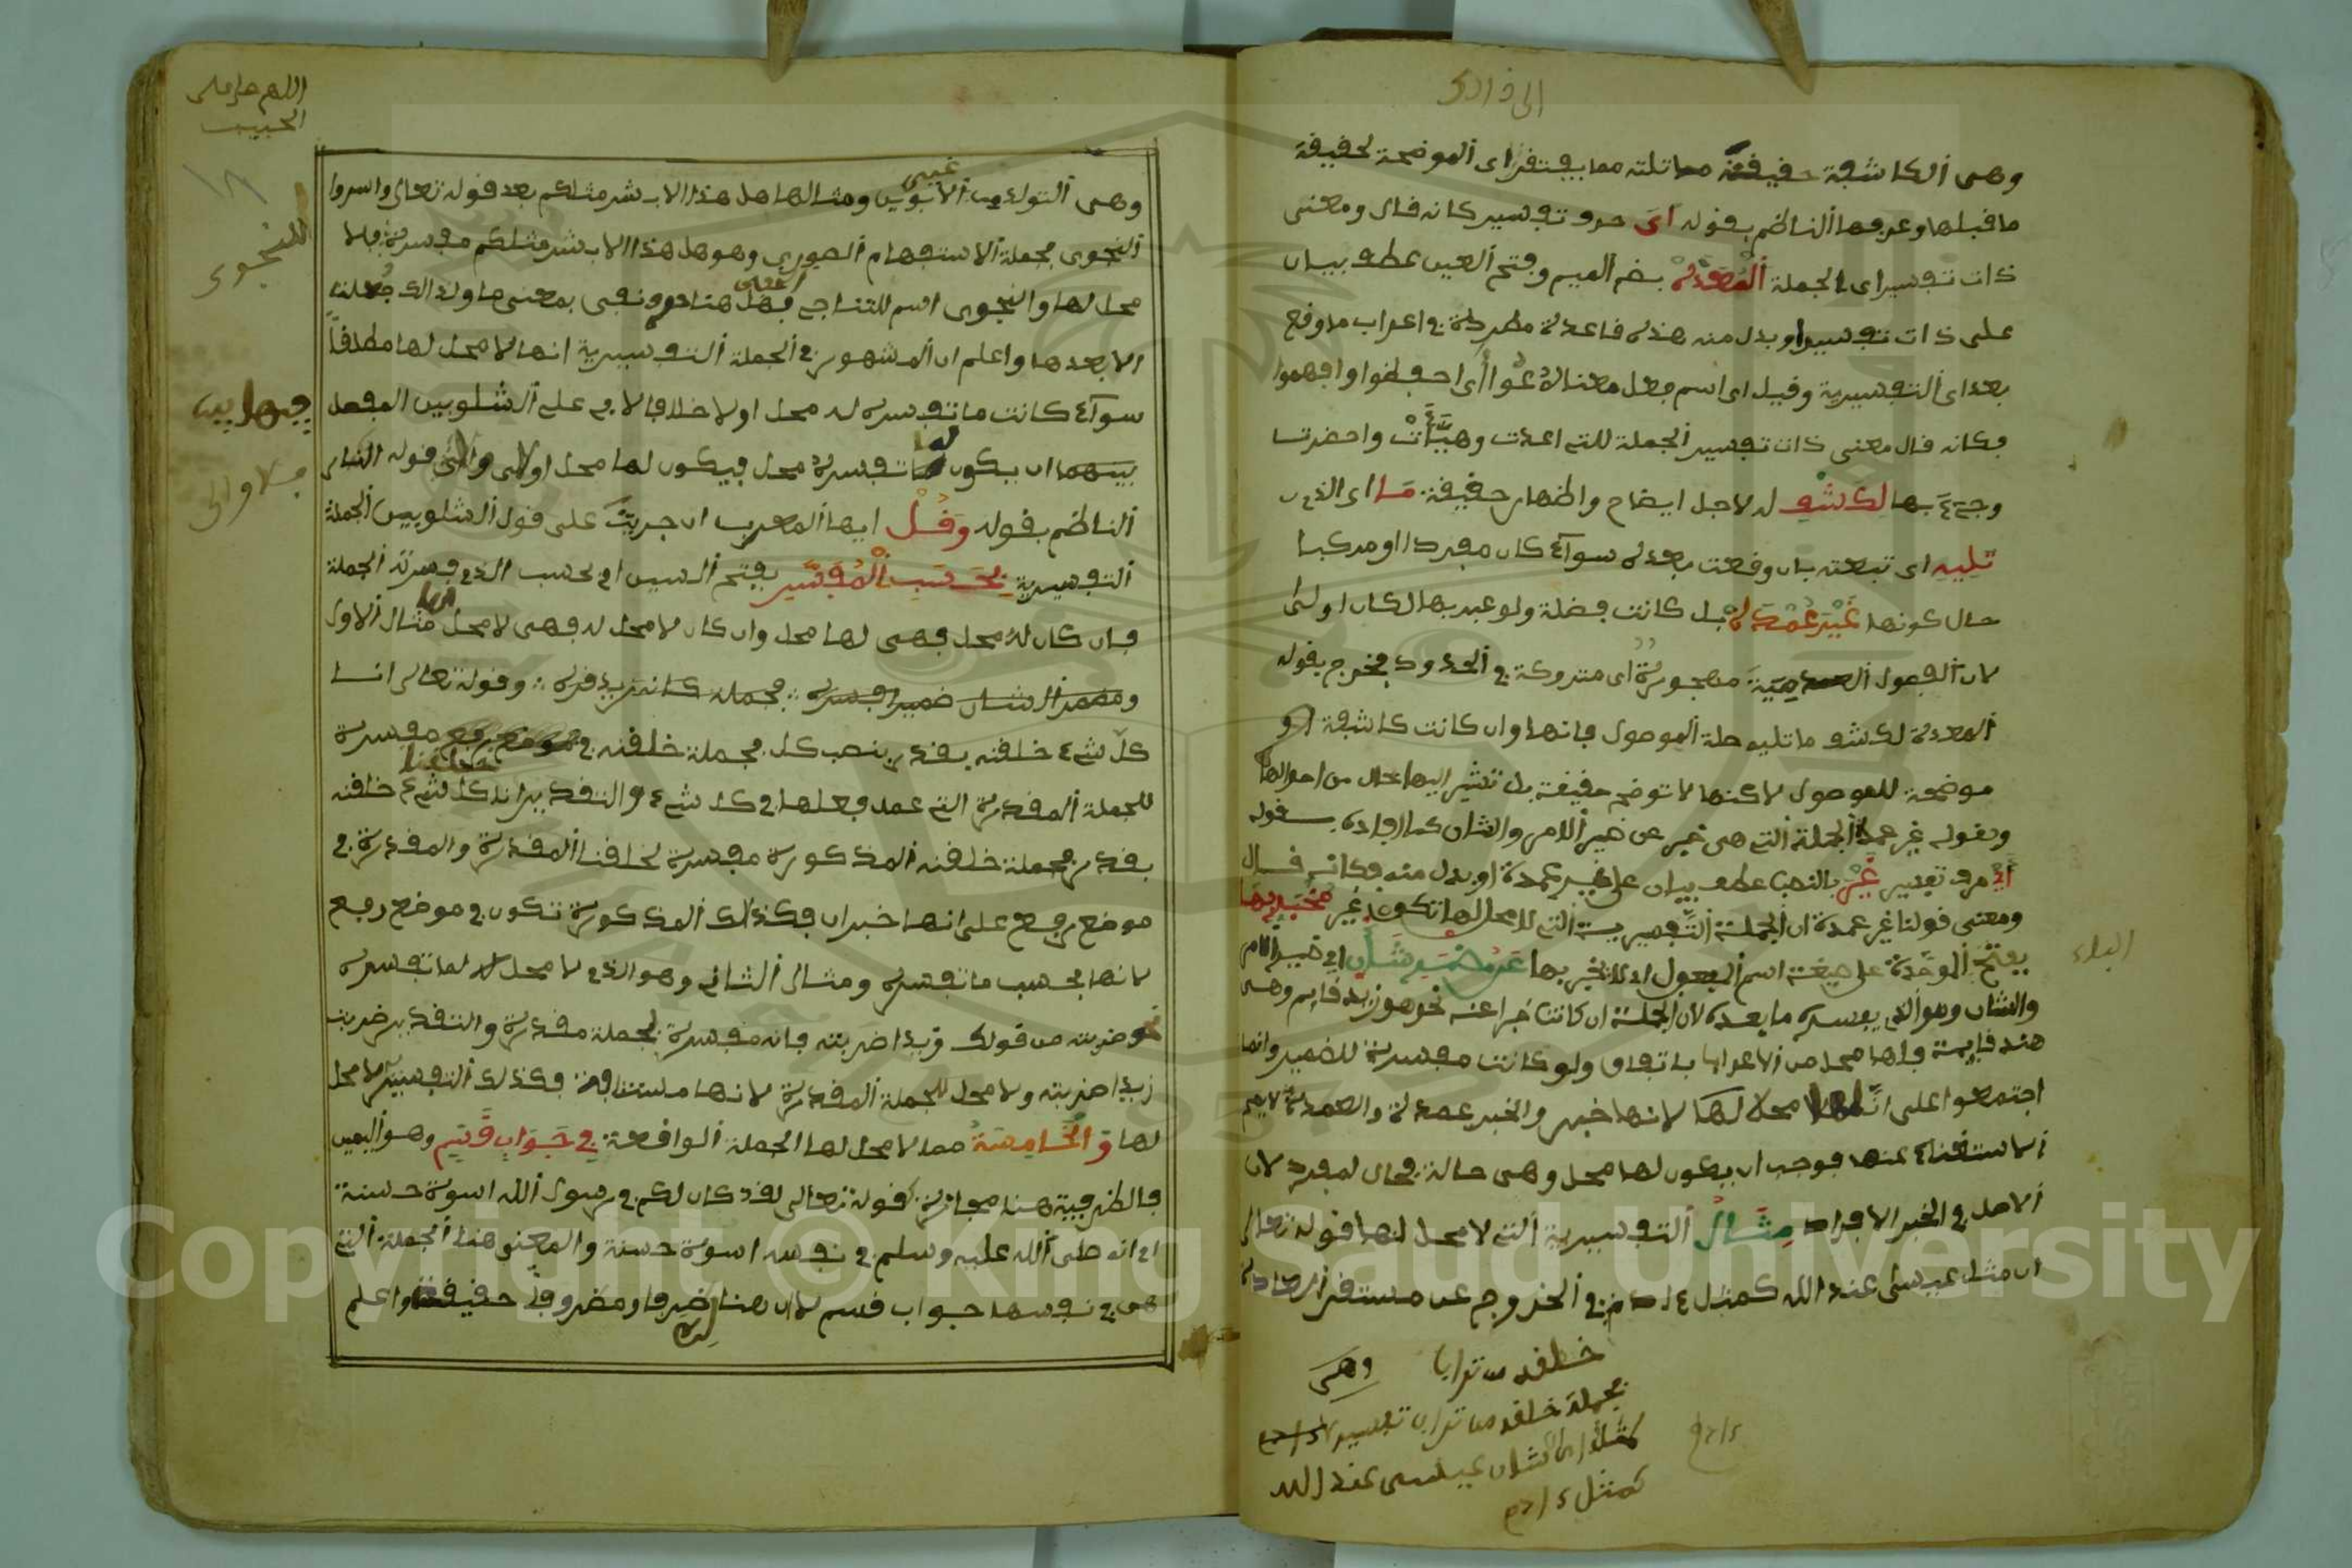 وهى الكاشفة حقيقة ماتلته مما يفتقر اى الموضحة لحقيقة
ما قبلها وعرفها الناظم بقوله اى حرف تفسير كانه قال ومعنى
ذات تفسير اى الجملة المعدة بضم الميم وفتح العين عطف بيان
على ذات تفسير او بدل منه هذه قاعدة مطردة في اعراب ما وقع
بعد اى التفسيرية وقيل اى اسم فعل معناه عوا أى احفظوا وافهموا
فكانه قال معنى ذات تفسير الجملة للتى اعدت وهيّأت واحضرت
وجىء بها لكشف لاجل ايضاح واظهار حقيقة ما اى الذى
تليه اى تبعته بان وقعت بعده سوآء كان مفردا او مركبا
حال كونها غير عمدة بل كانت فضلة ولو عبر بها لكان اولى
لان الفصول العدمية مهجورة اى متروكة في الحدود فخرج بقوله
المعدة لكشف ما تليه صلة الموصول فانها وان كانت كاشفة او
موضحة للموصول لاكنها لا توضح حقيقة بل تشير اليها بحال من احوالها
وبقوله غير عمدة الجملة التى هى خبر عن ضمير الامر والشان كما افاده بقوله
اى حرف تفسير غير بالنصب عطف بيان على غير عمدة او بدل منه فكانه قال
ومعنى قولنا غير عمدة ان الجملة التفسيرية التى لا محل لها تكون غير مخبر بها
بفتح الموحدة على صيغة اسم المفعول اى لا يخبر بها عن مضمر شان اى ضمير الامر
والشان وهو الذى يفسره ما بعده لان الجملة ان كانت خبرا عنه نحو هو زيد قايم وهى
هند قايمة فلها محل من الاعراب باتفاق ولو كانت مفسرة للضمير وانما
اجتمعوا على ان لها محلا لانها خبر والخبر عمدة والعمدة لا يصح
الاستغناء عنها فوجب ان يكون لها محل وهى حالة محل المفرد لان
الاصل في الخبر الافراد مثال التفسيرية التى لا محل لها قوله تعالى
ان مثل عيسى عند الله كمثل ءادم في الخروج عن مستقر العادة
خلقه من تراب وهى
فجملة خلقه من تراب تفسير
كمثل اى ان شان عيسى عند الله
كمثل ءادم
البـاء
اللهم صل على
الحبيب
وهى التولد من الابوين ومثالها هل هذا الا بشر مثلكم بعد قوله تعالى واسروا
النجوى فجملة الاستفهام الصورى وهو هل هذا الا بشر مثلكم مفسرة فلا
محل لها والنجوى اسم للتناجى فهل هنا حرف نفى بمعنى ما ولذالك جعلت
الا بعدها واعلم ان المشهور في الجملة التفسيرية انها لا محل لها مطلقا
سوآء كانت ما تفسره له محل او لا خلافا لابى على الشلوبين المفصل
بينهما ان يكون لما تفسره محل فيكون لها محل او لا والى قوله اشار
الناظم بقوله وقل ايها المعرب ان جريت على قول الشلوبين الجملة
التفسيرية بحسب المفسر بفتح السين اى بحسب الذى فسرته الجملة
فان كان له محل فهى لها محل وان كان لا محل له فهى لا محل لها مثال الاول
ومضمر الشان ضمير افسره فجملة كانه زيد قره وقوله تعالى انا
كل شىء خلقنه بقدر بنصب كل فجملة خلقنه مفسرة
للجملة المقدرة التى عمل فعلها في كل شىء والتقدير انا خلقنا كل شىء خلقنه
بقدر فجملة خلقنه المذكورة مفسرة لخلقنا المقدرة والمقدرة في
موضع رفع على انها خبر ان فكذلك المذكورة تكون في موضع رفع
لانها بحسب ما تفسره ومثال الثانى وهو الذى لا محل لما تفسره
نحو ضربته من قولك زيدا ضربته فانه مفسرة لجملة مقدرة والتقدير ضربت
زيدا ضربته ولا محل للجملة المقدرة لانها مستانفة فكذلك التفسير لا محل
لها والخامسة مما لا محل لها الجملة الواقعة في جواب قسم وهو اليمين
فالظرفية هنا مجازية كقوله تعالى لقد كان لكم في رسول الله اسوة حسنة
اى انه صلى الله عليه وسلم في نفسه اسوة حسنة والمعنى هنا الجملة التى
هى في نفسها جواب قسم لان هنا ظرفا ومظروفا حقيقة واعلم